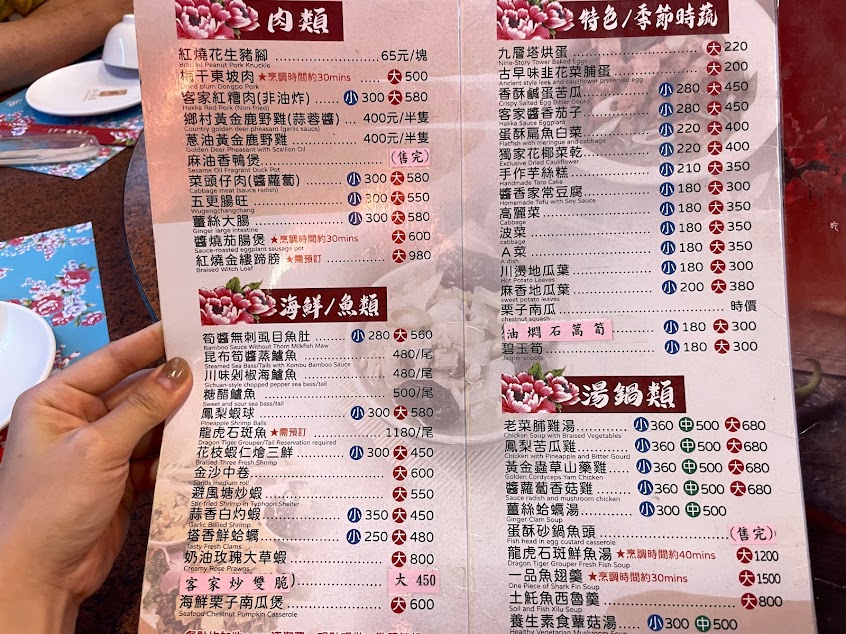 肉類
紅燒花生豬腳 65元/塊
Braised Peanut Pork Knuckle
梅干東坡肉 ★烹調時間約30mins 大 500
Dried plum Dongpo Pork
客家紅糟肉(非油炸) 小 300 大 580
Hakka Red Pork (Non-fried)
鄉村黃金鹿野雞(蒜蓉醬) 400元/半隻
Country golden deer pheasant (garlic sauce)
蔥油黃金鹿野雞 400元/半隻
Golden Deer Pheasant with Scallion Oil
麻油香鴨煲 (售完)
Sesame Oil Fragrant Duck Pot
菜頭仔肉(醬蘿蔔) 小 300 大 580
Cabbage meat (sauce radish)
五更腸旺 小 300 大 550
Wugengchangchang
薑絲大腸 小 300 大 580
Ginger large intestine
醬燒茄腸煲 ★烹調時間約30mins 大 600
Sauce-roasted eggplant sausage pot
紅燒金縷蹄膀 ★需預訂 大 980
Braised Witch Loaf
海鮮/魚類
筍醬無刺虱目魚肚 小 280 大 560
Bamboo Sauce Without Thorn Milkfish Maw
昆布筍醬蒸鱸魚 480/尾
Steamed Sea Bass/Tails with Kombu Bamboo Sauce
川味剁椒海鱸魚 480/尾
Sichuan-style chopped pepper sea bass/tail
糖醋鱸魚 500/尾
Sweet and sour sea bass/tail
鳳梨蝦球 小 300 大 580
Pineapple Shrimp Balls
龍虎石斑魚 ★需預訂 1180/尾
Dragon Tiger Grouper/Tail Reservation required
花枝蝦仁燴三鮮 小 300 大 450
Braised Three Fresh Shrimp
金沙中卷 大 600
Sands medium roll
避風塘炒蝦 大 550
Stir-fried Shrimp in Typhoon Shelter
蒜香白灼蝦 小 350 大 450
Garlic Boiled Shrimp
塔香鮮蛤蠣 小 250 大 480
Tasty Fresh Clams
奶油玫瑰大草蝦 大 800
Creamy Rose Prawns
客家炒雙脆) 大 450
海鮮栗子南瓜煲 大 600
Seafood Chestnut Pumpkin Casserole
特色/季節時蔬
九層塔烘蛋 大 220
Nine-Story Tower Baked Eggs
古早味韭花菜脯蛋 大 200
Ancient style leek and cauliflower preserved egg
香酥鹹蛋苦瓜 小 280 大 450
Crispy Salted Egg Bitter Gourd
客家醬香茄子 小 280 大 450
Hakka Sauce Eggplant
蛋酥扁魚白菜 小 220 大 400
Flatfish with meringue and cabbage
獨家花椰菜乾 小 220 大 400
Exclusive Dried Cauliflower
手作芋絲糕 小 210 大 350
Handmade Taro Cake
醬香家常豆腐 小 180 大 350
Homemade Tofu with Soy Sauce
高麗菜 小 180 大 350
Cabbage
波菜 小 180 大 350
cabbage
A菜 小 180 大 350
A dish
川燙地瓜葉 小 180 大 300
Hot Potato Leaves
麻香地瓜葉 小 200 大 380
sweet potato leaves
栗子南瓜 時價
chestnut squash
油燜石蒿筍 小 180 大 300
碧玉筍
Jasper shoots
湯鍋類
老菜脯雞湯 小 360 中 500 大 680
Chicken Soup with Braised Vegetables
鳳梨苦瓜雞 小 360 中 500 大 680
Chicken with Pineapple and Bitter Gourd
黃金蟲草山藥雞 小 360 中 500 大 680
Golden Cordyceps Yam Chicken
醬蘿蔔香菇雞 小 360 中 500 大 680
Sauce radish and mushroom chicken
薑絲蛤蠣湯 小 300 中 500
Ginger Clam Soup
蛋酥砂鍋魚頭 (售完)
Fish head in egg custard casserole
龍虎石斑鮮魚湯 ★烹調時間約40mins 大 1200
Dragon Tiger Grouper Fresh Fish Soup
一品魚翅羹 ★烹調時間約30mins 大 1500
One Piece of Shark Fin Soup
土魠魚西魯羹 大 800
Soil and Fish Xilu Soup
養生素食蕈菇湯 小 300 中 500
Healthy Vegetarian Mushroom Soup